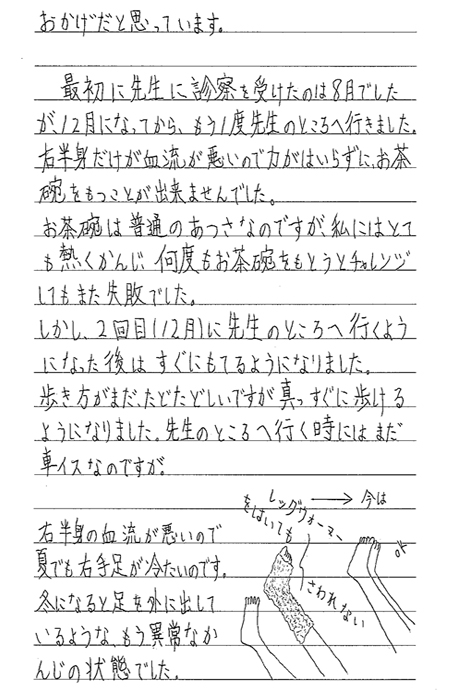 おかげだと思っています。
最初に先生に診察を受けたのは8月でした
が、12月になってから、もう1度先生のところへ行きました。
右半身だけが血流が悪いので力がはいらずに、お茶
碗をもつことが出来ませんでした。
お茶碗は普通のあつさなのですが、私にはとて
も熱くかんじ、何度もお茶碗をもとうとチャレンジ
してもまた失敗でした。
しかし、2回目(12月)に先生のところへ行くよう
になった後はすぐにもてるようになりました。
歩き方がまだ、たどたどしいですが真っすぐに歩ける
ようになりました。先生のところへ行く時にはまだ
車イスなのですが。
右半身の血流が悪いので
夏でも右手足が冷たいのです。
冬になると足を外に出して
いるような、もう異常なか
んじの状態でした。
レッグウォーマー
をはいても
さわれない
→ 今は
OK